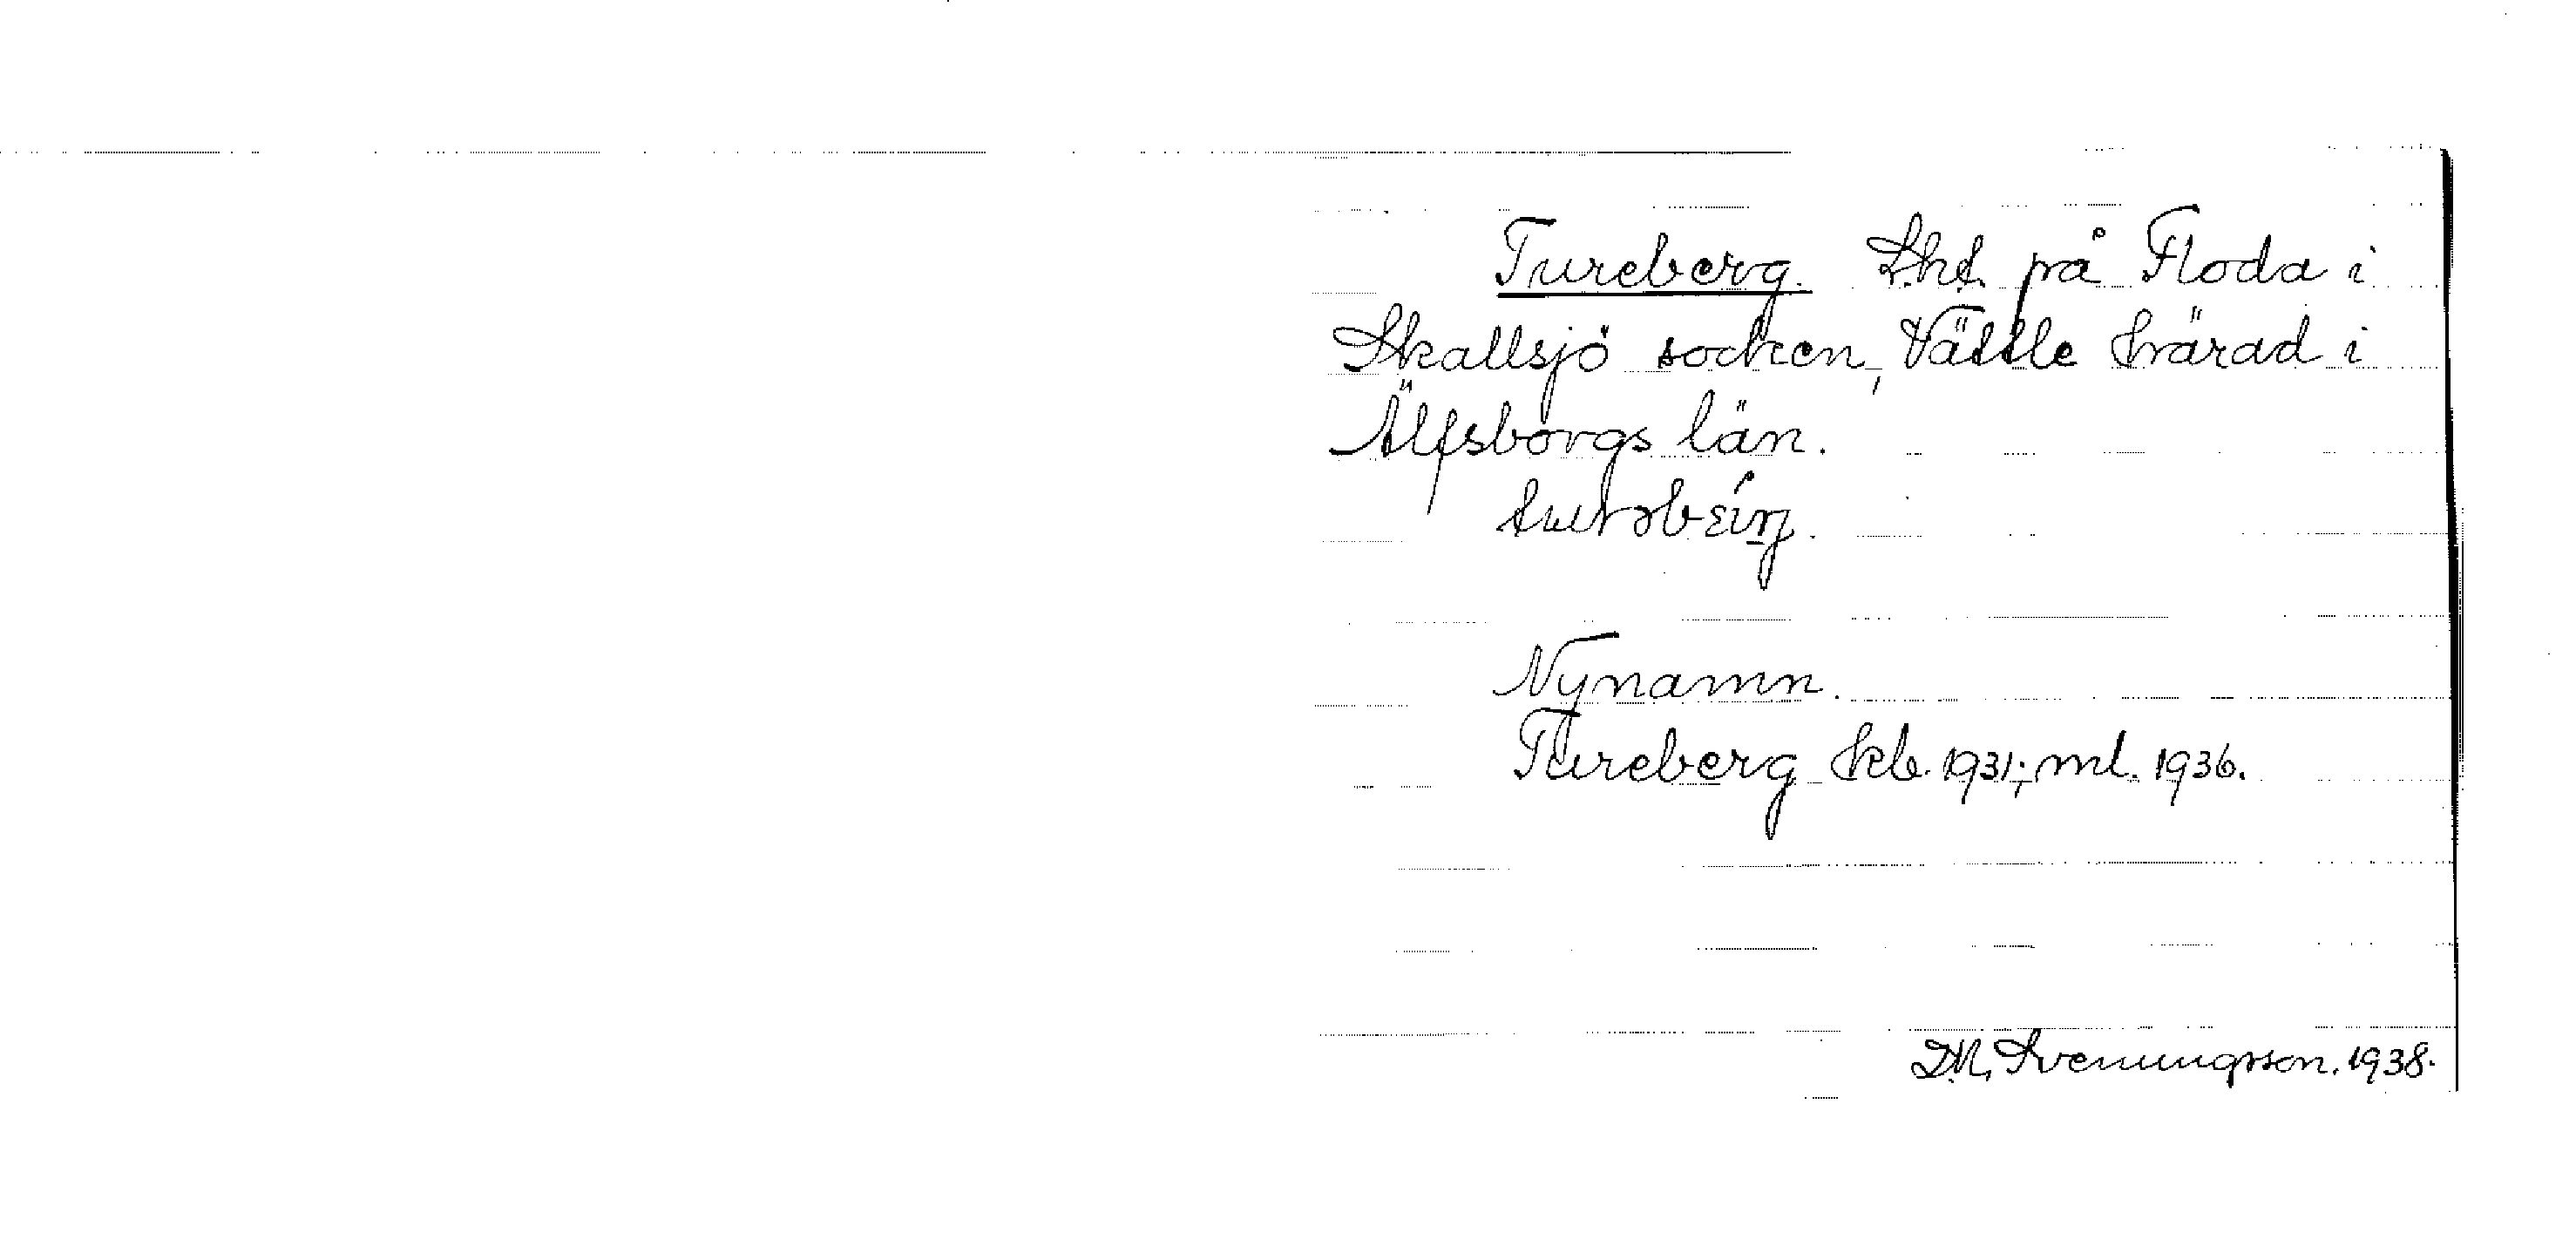 Tureberg. Lht. på Floda i
Skallsjö socken, Vättle härad i
Älfsborgs län.
Nynamn.
Tureberg kb. 1931; ml. 1936.
D.N. Sveningsson. 1938.